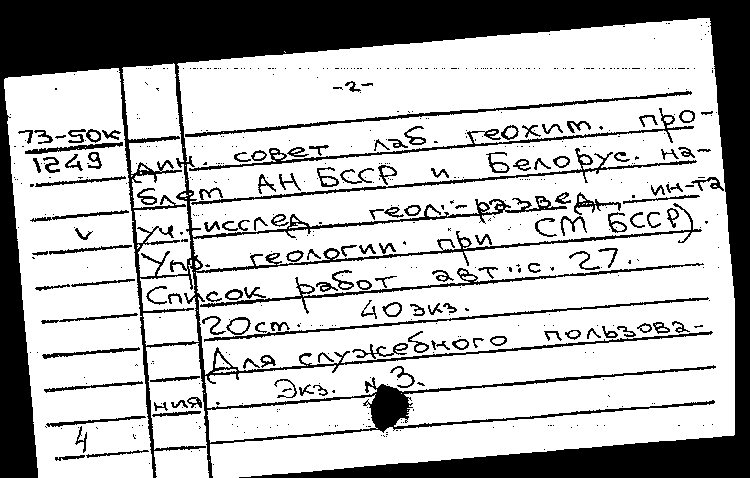 -2-
73-50к
1249
дин. совет лаб. геохим. про-
блем АН БССР и Белорус. на-
v уч.-исслед. геол.-развед. ин-та
Упр. геологии при СМ БССР).
Список работ авт.: с. 27.
20см. 40экз.
Для служебного пользова-
ния. Экз. № 3.
4